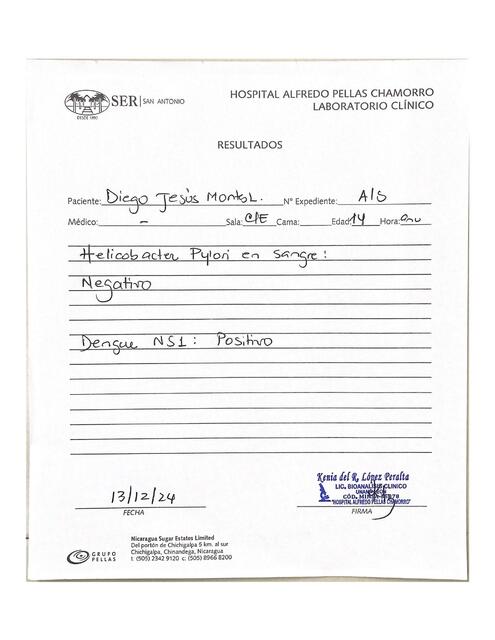 SER SAN ANTONIO
DESDE 1890
HOSPITAL ALFREDO PELLAS CHAMORRO
LABORATORIO CLÍNICO
RESULTADOS
Paciente: Diego Jesús Montes L. N° Expediente: A/S
Médico: - Sala: C/E Cama: Edad: 14 Hora:
Helicobacter Pylori en sangre:
Negativo
Dengue NS1: Positivo
13/12/24
FECHA
Kenia del R. López Peralta
LIC. BIOANALISIS CLINICO
CÓD. MINSA
"HOSPITAL ALFREDO PELLAS CHAMORRO"
FIRMA
GRUPO PELLAS
Nicaragua Sugar Estates Limited
Del portón de Chichigalpa 5 km. al sur
Chichigalpa, Chinandega, Nicaragua
t: (505) 2342 9120 c: (505) 8966 8200